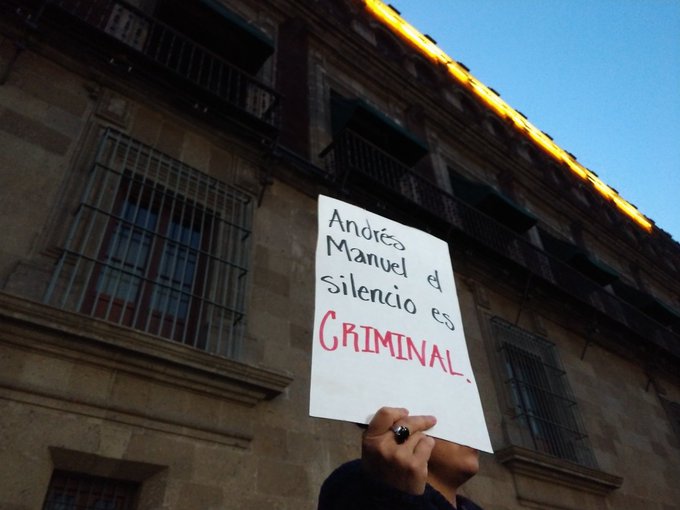 Andrés
Manuel el
silencio es
CRIMINAL.